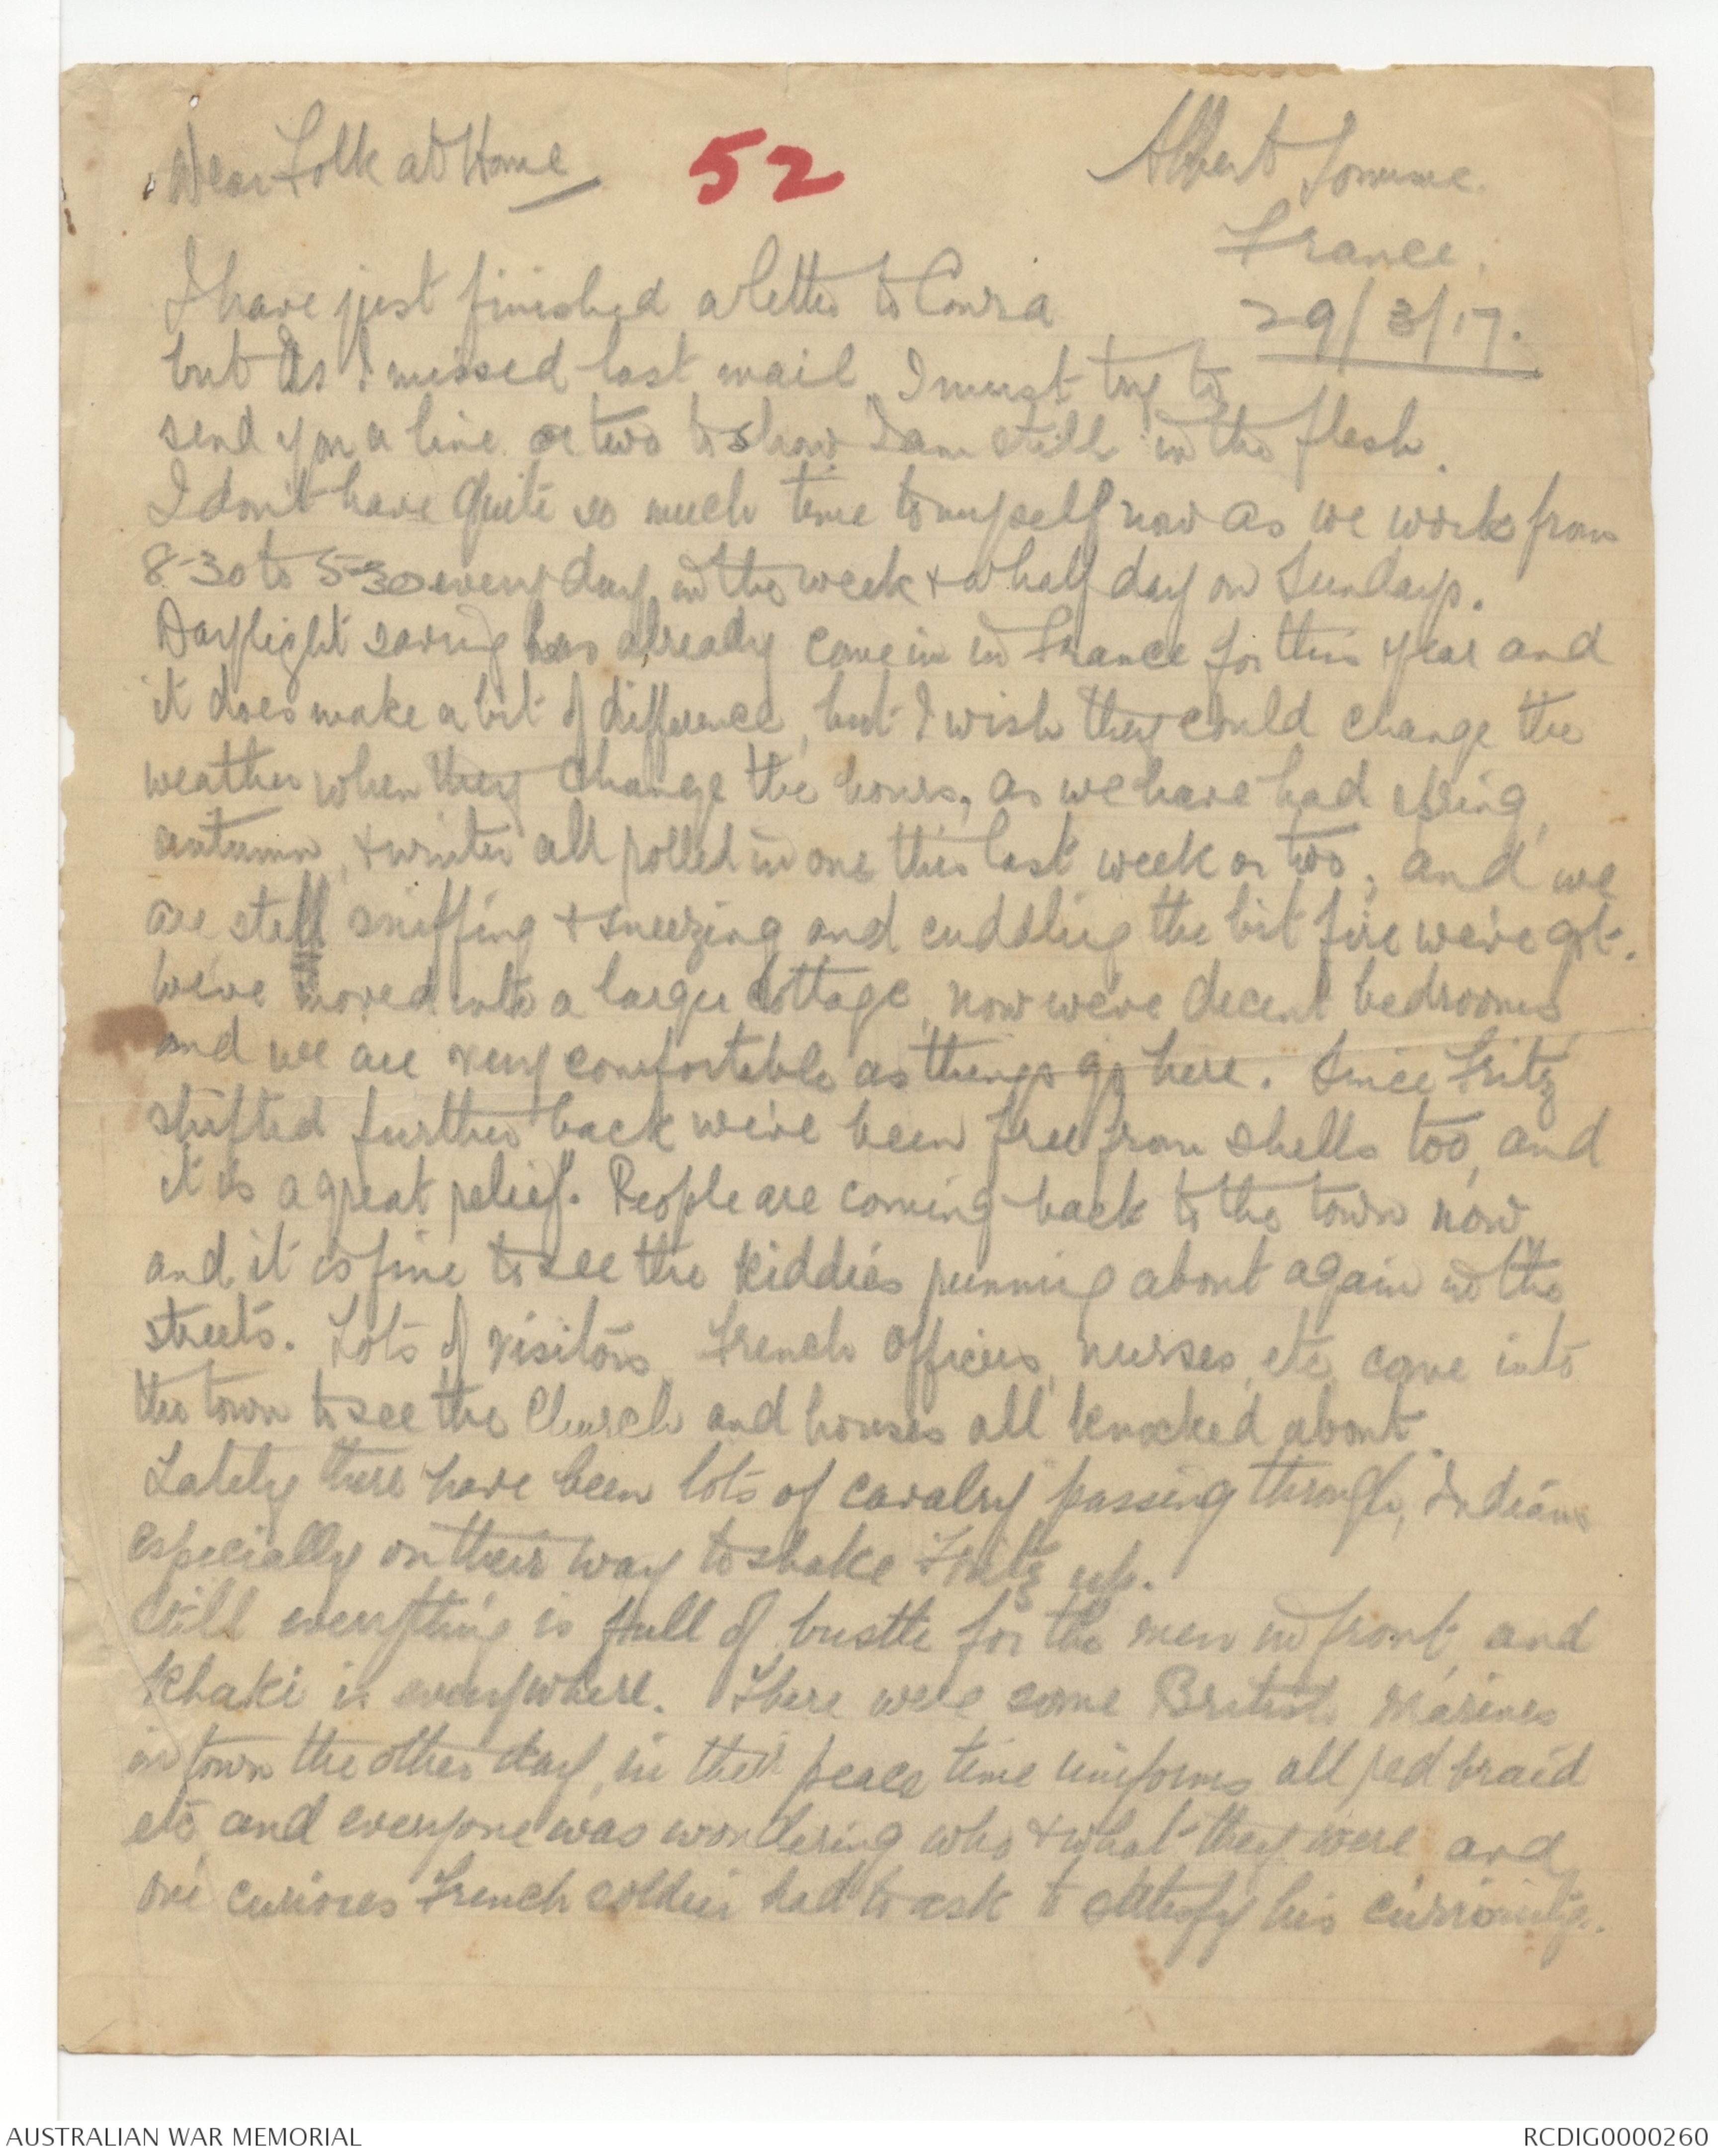 Dear Folk at Home 52 Albert Somme.
France.
29/3/17.
I have just finished a letter to
but as I missed last mail, I must try to
send you a line or two to show I am still in the flesh.
I don't have quite so much time to myself now as we work from
8-30 to 5-30 every day in the week & a half day on Sundays.
Daylight saving has already come in in France for this year and
it does make a bit of difference, but I wish they could change the
weather when they change the hours, as we have had spring,
autumn, & winter all rolled in one this last week or two, and we
are still sniffing & sneezing and cuddling the bit fire we've got.
We've moved into a larger cottage, now we've decent bedrooms
and we are very comfortable as things go here. Since Fritz
shifted further back we've been free from shells too, and
it is a great relief. People are coming back to the town now
and it is fine to see the kiddies running about again in the
streets. Lots of visitors French officers, nurses, etc, come into
the town to see the Church and houses all knocked about.
Lately there have been lots of cavalry passing through, Indians
especially on their way to shake Fritz up.
Still everything is full of bustle for the men in front, and
khaki is everywhere. There were some British Marines
in town the other day, in their peace time uniforms all red braid
etc, and everyone was wondering who & what they were and
one curious French soldier had to ask to sattisfy his
AUSTRALIAN WAR MEMORIAL RCDIG0000260